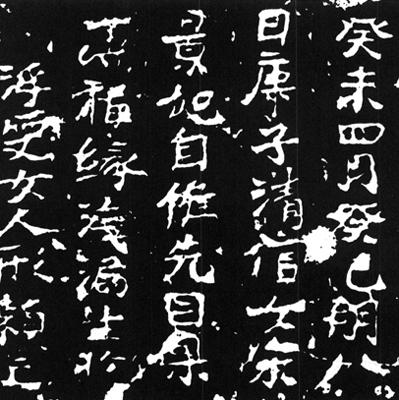 癸未四月癸巳朔八
日庚子清信女宋
景妃自惟先因果
福緣淺漏生於
浮受女人形賴亡